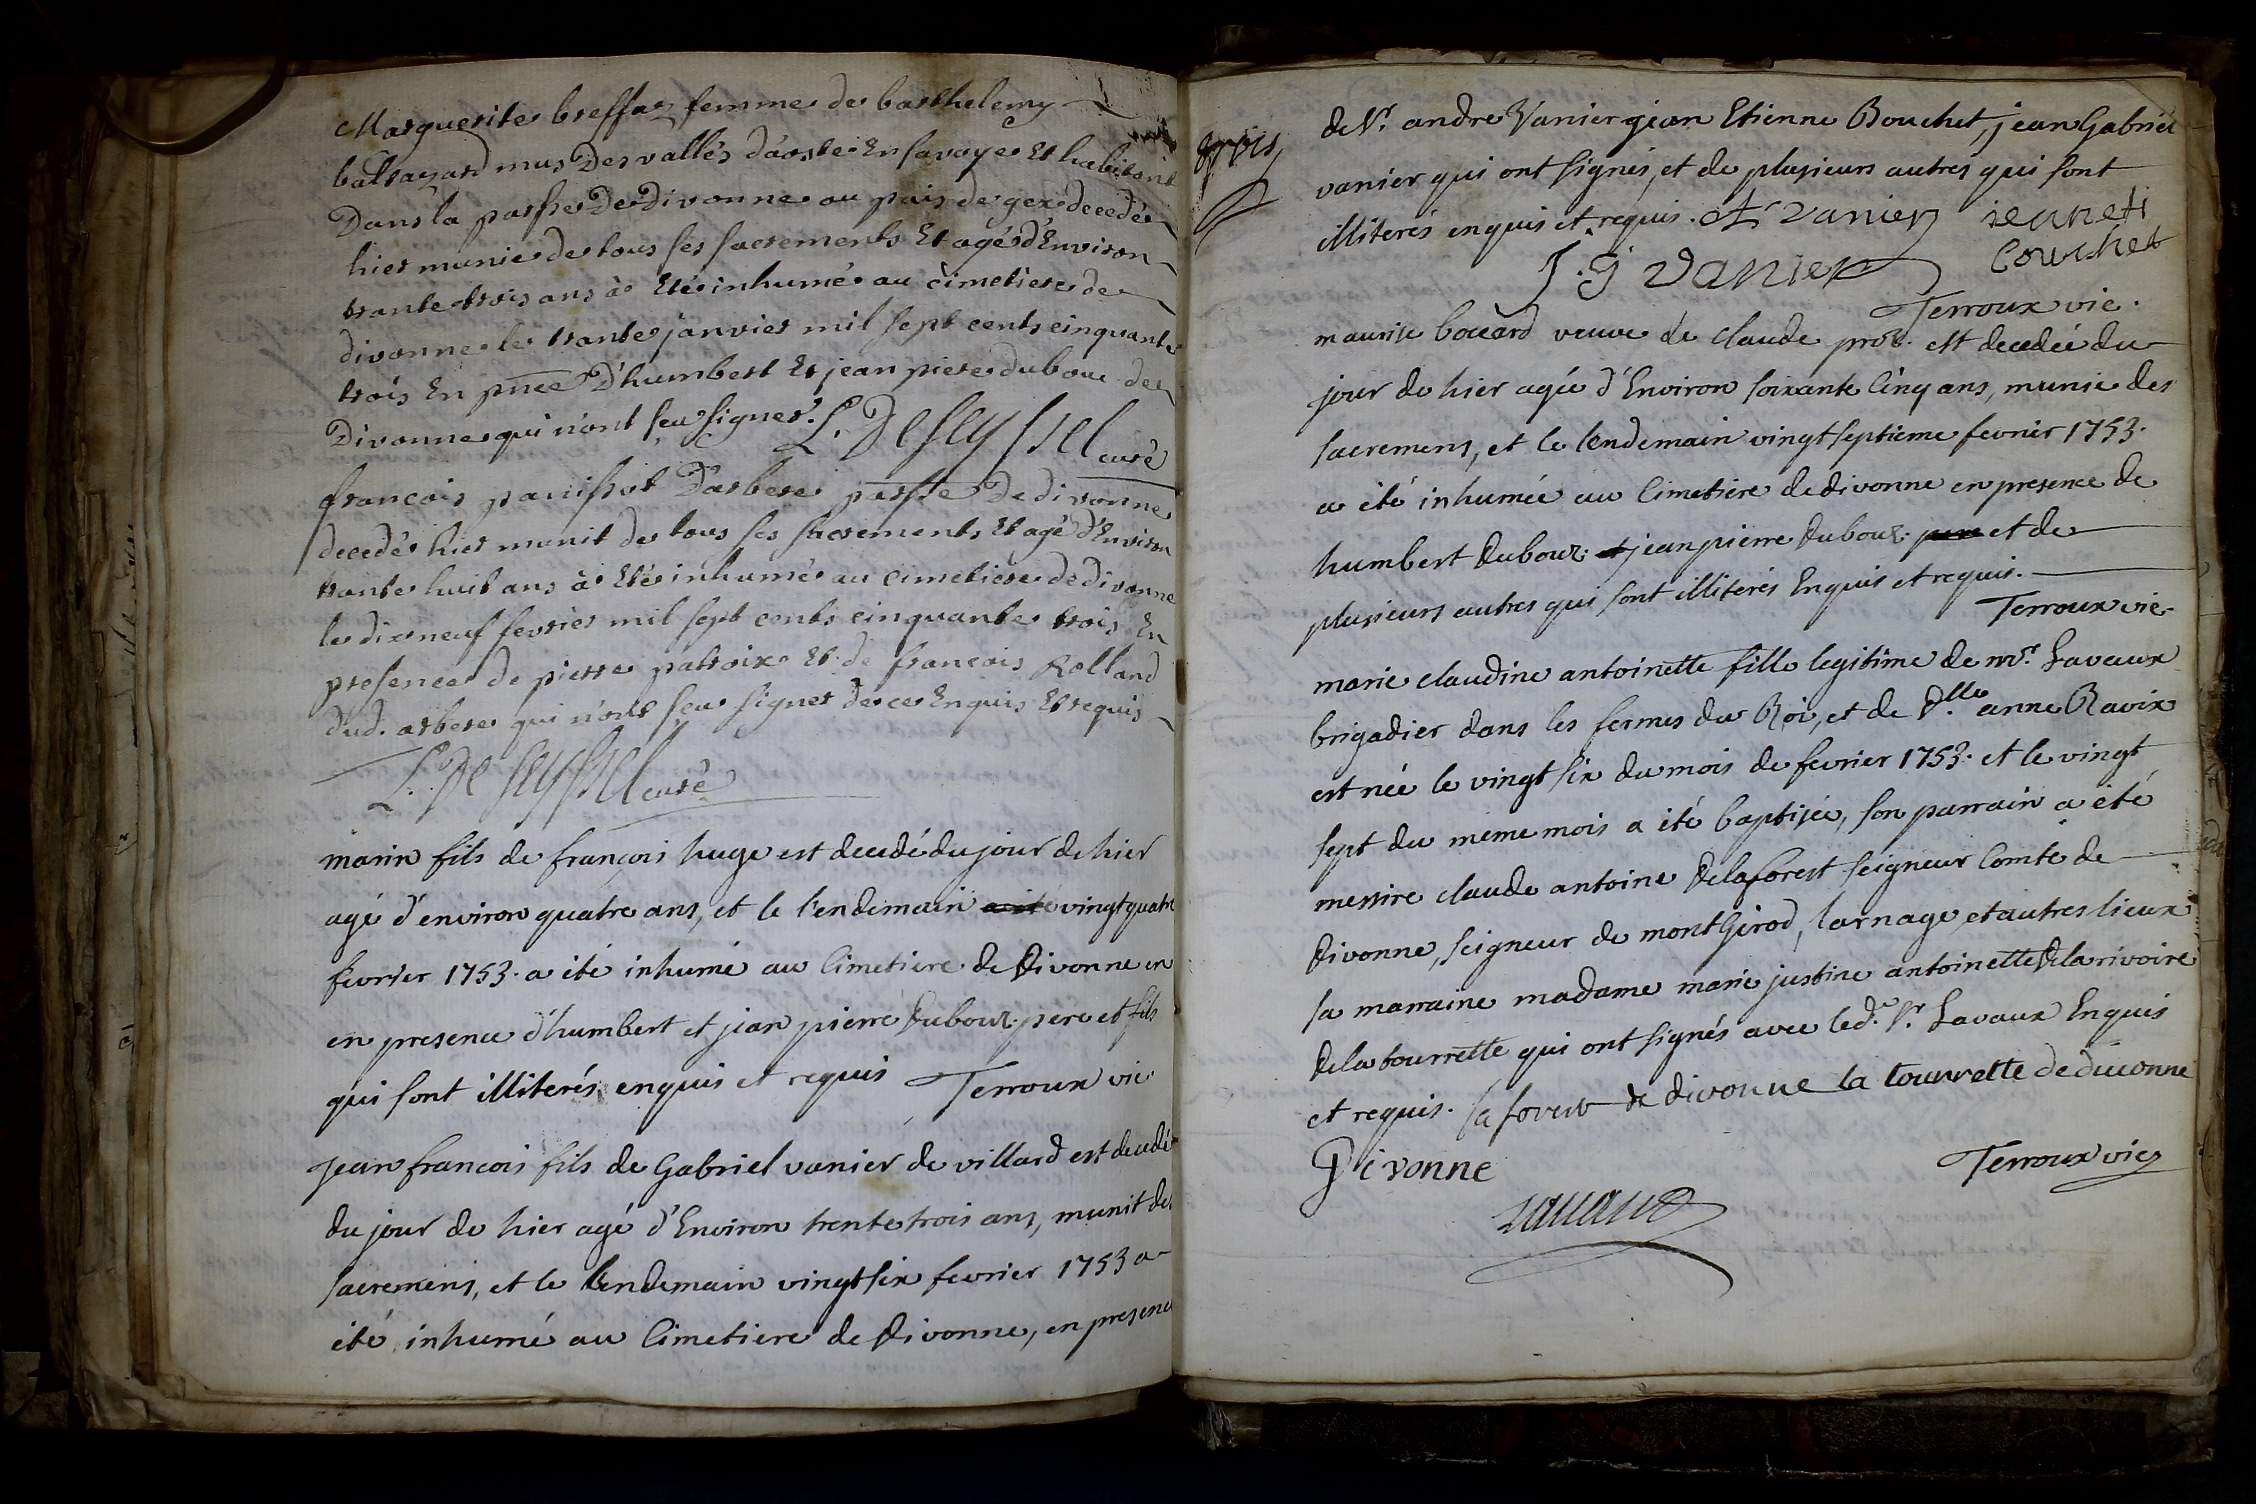 Marguerite breffaz femme de barthelemy
baltazard mus Des vallés d'aoste En savoye Et habitant
Dans la parsse De Divonne au païs de gex decedée
hier munie de tous ses sacrements Et agée d'Environ
trante trois ans à Eté inhumée au cimetiere de
divonne le trante janvier mil sept cents cinquante
trois En pnce D'humbert Et jean piere dubouz de
Divonne qui n'ont sçu signer. L. De Seyssel curé
francois panissot D'arbere parsse De divonne
decedé hier munit de tous ses sacrements Et agé d'Environ
trante huit ans à Eté inhumé au cimetiere de divonne
le dix neuf fevrier mil sept cents cinquante trois En
presence de pierre patroix Et de francois Rolland
dud. arbere qui n'ont sçu signer de ce Enquis Et requis
L. De Seyssel curé
marin fils de françois huge est decedé du jour de hier
agé d'environ quatre ans, et le lendemain vingt quatre
fevrier 1753. a été inhumé au Cimetiere de Divonne en
en presence d'humbert et jean pierre Dubouz. pere et fils
qui sont illiterés enquis et requis Terroux vic.
Jean francois fils de Gabriel vanier de villard est decedé
du jour de hier agé d'Environ trente trois ans, munit des
sacremens, et le lendemain vingt six fevrier 1753 a
été inhumé au Cimetiere de Divonne, en presence
trois
de Sr. andre Vanier jean Etienne Bouchet, jean Gabriel
vanier qui ont signés, et de plusieurs autres qui sont
illiterés enquis et requis. A vanier ieaneti
J. G vanier Bouchet
Terroux vic.
maurise boccard veuve de Claude prot. est decedée du
jour de hier agée d'Environ soixante Cinq ans, munie des
sacremens, et le lendemain vingt septieme fevrier 1753.
a été inhumée au Cimetiere de divonne en presence de
humbert Dubouz. et jean pierre Dubouz. et de
plusieurs autres qui sont illiterés Enquis et requis.
Terroux vic.
marie claudine antoinette fille legitime de mr. Lavaux
brigadier dans les fermes du Roi, et de Dlle. anne Ravix
est née le vingt six du mois de fevrier 1753. et le vingt
sept du meme mois a été baptisée, son parrain a été
messire claude antoine Delaforest seigneur Comte de
Divonne, seigneur de montGirod, larnage, et autres lieux
sa marraine madame marie justine antoinette Delarivoire
Delatourrette qui ont signés avec led. Sr. Lavaux Enquis
et requis. la forest de divonne la tourrette de divonne
Divonne Terroux vic
Lavaux